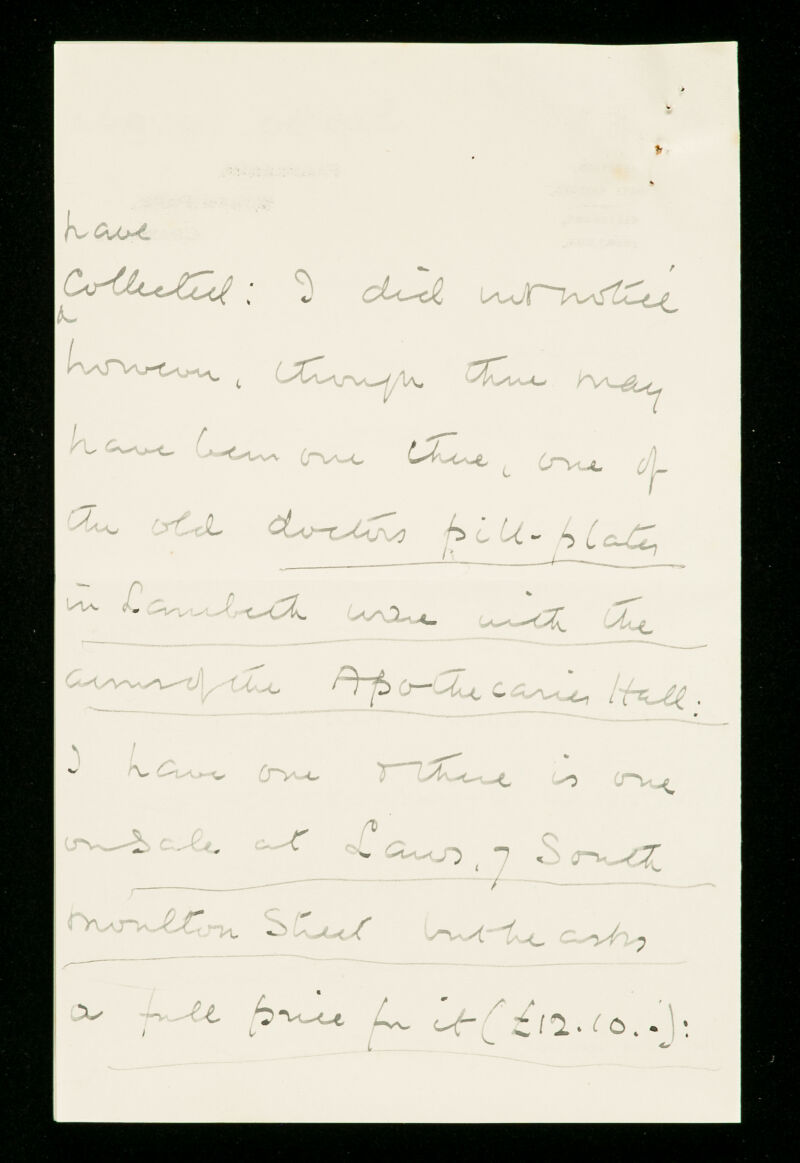 have
Collected: I did not notice
however, though there may
have been one there, one of
the old doctors pill-plates
in Lambeth ware with the
arms of the Apothecaries Hall:
I have one & there is one
on sale at Laws, 7 South
Moulton Street but he asks
a full price for it (£12.10.-):